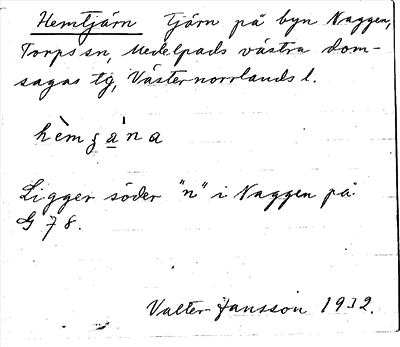 Hemtjärn Tjärn på byn Naggen,
Torps sn, Medelpads västra dom-
sagas tg, Västernorrlands l.
hèmgána
Ligger söder "n" i Naggen på
G 78.
Valter Jansson 1932.